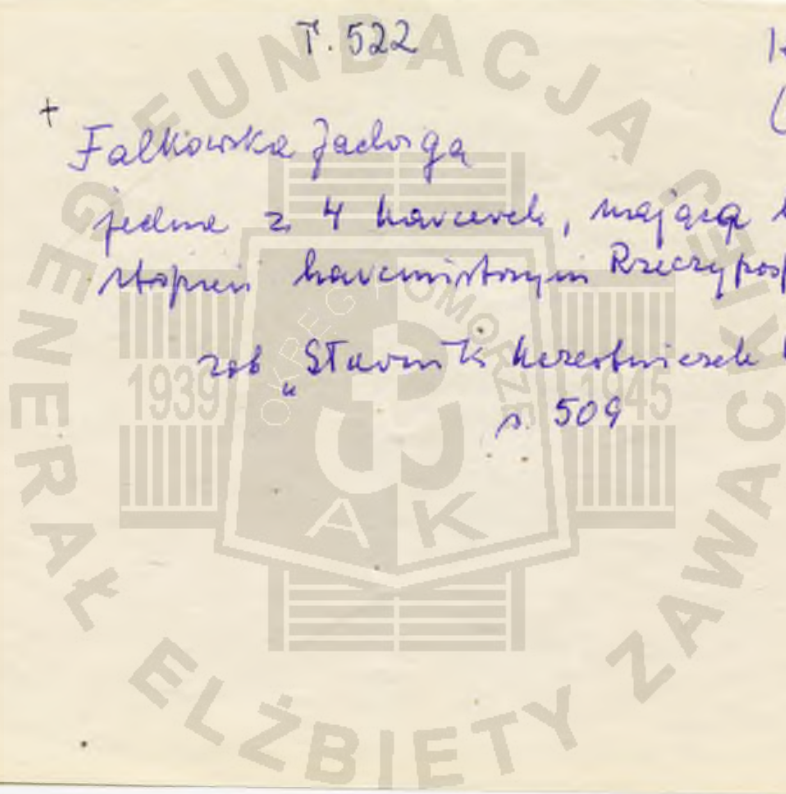 T. 522
+
Falkowska Jadwiga
jedna z 4 harcerek, mająca
stopień harcmistrzyni Rzeczyposp
zob "Słownik uczestniczek
s. 509
FUNDACJA GENERAŁ ELŻBIETY ZAWACKIEJ
OKRĘG POMORZE
1939 1945
AK